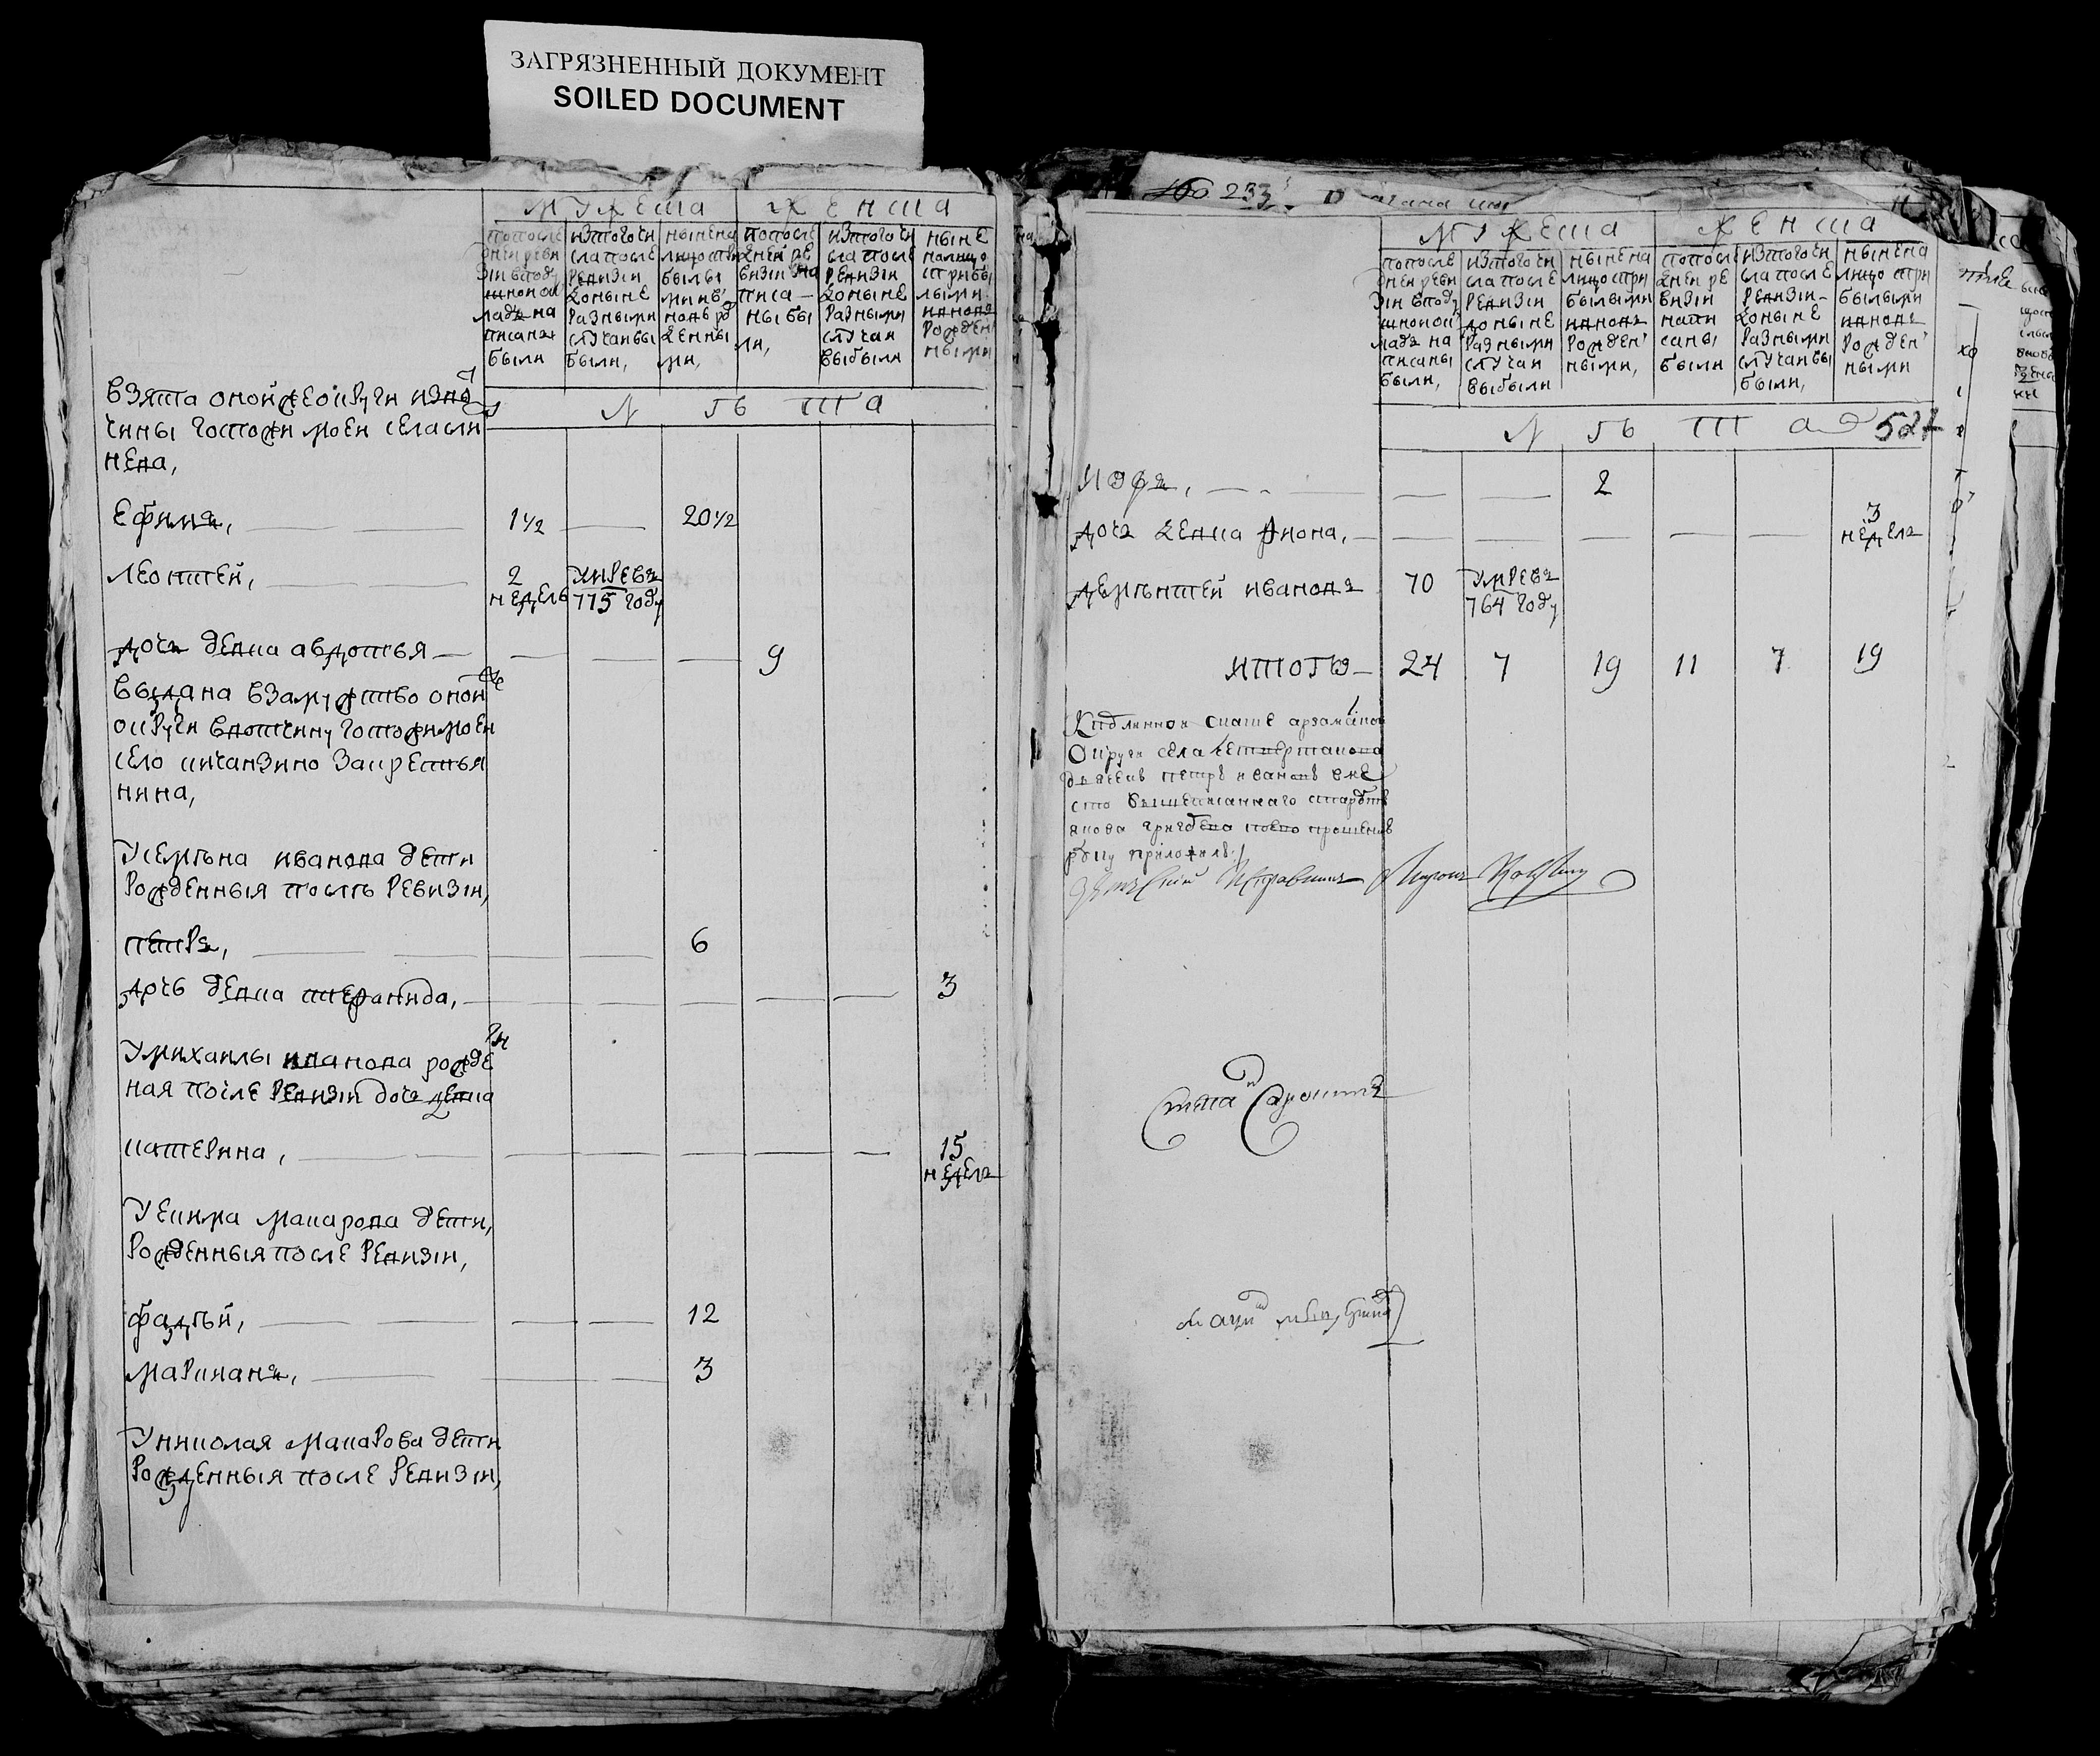 ЗАГРЯЗНЕННЫЙ ДОКУМЕНТ
SOILED DOCUMENT
мужеска
женска
попосле
дней реви
зіи вподу
шной ок
ладъ на
писаны
были
изтого чи
сла после
ревизіи
доныне
разными
случаи вы
были,
ныне на
лицо при
былы
ми в
новь ро
жденны
ми,
попосле
дней ре
визіи на
писа
ны бы
ли,
изтого чи
сла после
ревизіи
доныне
разными
случаи
выбыли
ныне
налицо
прибы
лыми
ивновь
рожден
ными
лета
взята оной же округи извот
чины госпожи моеи села
нева,
ефимъ, 1 1/2 20 1/2
леонтей, 2 недель умре въ 775 году
дочь девка авдотья 9
выдана взамужство оной же
округи ввотчину госпожи моеи
село кичанзино закрестья
нина,
усемена иванова дети
рожденныя послѣ ревизіи,
петръ, 6
дочь девка степанида, 3
умихаилы иванова рожде
ная после ревизіи дочь девка
катерина, 15 недель
уекима макарова дети,
рожденныя после ревизіи,
фадѣй, 12
маркианъ, 3
униколая макарова дети
рожденныя после ревизіи,
233
мужеска
женска
попосле
дней реви
зіи вподу
шной ок
ладъ на
писаны
были,
изтого чи
сла после
ревизіи
доныне
разными
случаи
выбыли
ныне на
лицо при
былыми
ивновь
рожден
ными,
попосле
дней ре
визіи
напи
саны
были
изтого чи
сла после
ревизіи
доныне
разными
случаи вы
были,
ныне на
лицо при
былыми
ивновь
рожден
ными
лета
527
иофъ, 2
дочь девка фиона, 3 недель
дементей ивановъ 70 умре въ 764 году
итого 24 7 19 11 7 19
Кподлинной скаске арзамаской
округи села четвертакова
дьячекъ петръ ивановъ вме
сто вышеписаннаго старосты
якова григорева поево прошению
руку приложилъ